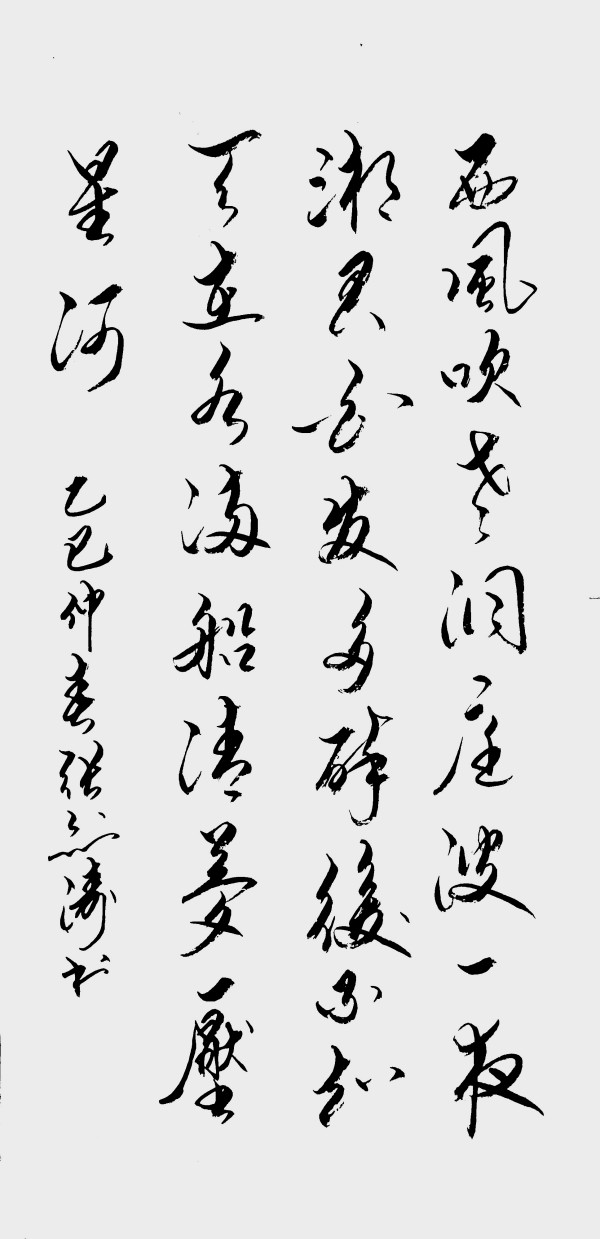 西風吹老洞庭波一夜
湘君白发多醉後不知
天在水满船清夢壓
星河
乙巳仲春张涛书